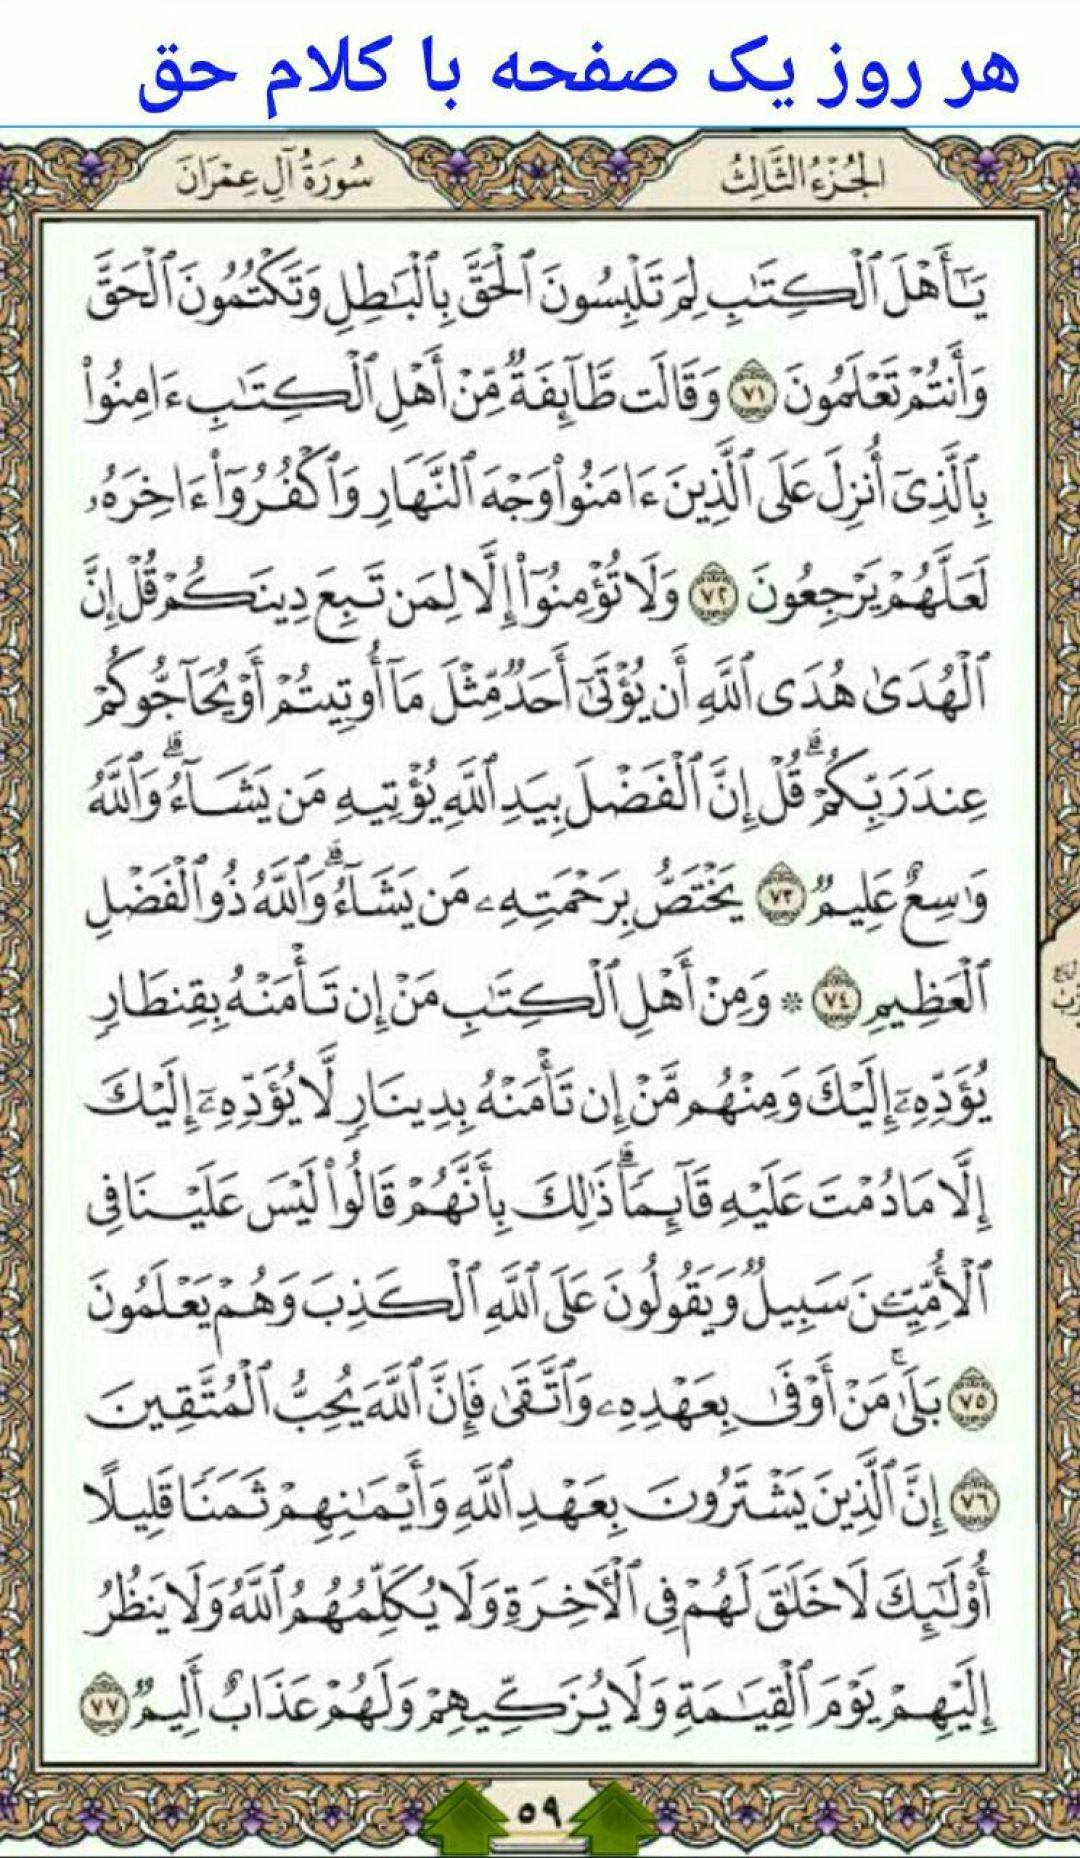 هر روز یک صفحه با کلام حق
الجُزءُ الثَّالِثُ
سُورَةُ آلِ عِمْرَانَ
يَـٰٓأَهْلَ ٱلْكِتَـٰبِ لِمَ تَلْبِسُونَ ٱلْحَقَّ بِٱلْبَـٰطِلِ وَتَكْتُمُونَ ٱلْحَقَّ
وَأَنتُمْ تَعْلَمُونَ ٧١ وَقَالَت طَّآئِفَةٌ مِّنْ أَهْلِ ٱلْكِتَـٰبِ ءَامِنُوا۟
بِٱلَّذِىٓ أُنزِلَ عَلَى ٱلَّذِينَ ءَامَنُوا۟ وَجْهَ ٱلنَّهَارِ وَٱكْفُرُوٓا۟ ءَاخِرَهُۥ
لَعَلَّهُمْ يَرْجِعُونَ ٧٢ وَلَا تُؤْمِنُوٓا۟ إِلَّا لِمَن تَبِعَ دِينَكُمْ قُلْ إِنَّ
ٱلْهُدَىٰ هُدَى ٱللَّهِ أَن يُؤْتَىٰٓ أَحَدٌ مِّثْلَ مَآ أُوتِيتُمْ أَوْ يُحَآجُّوكُمْ
عِندَ رَبِّكُمْ ۗ قُلْ إِنَّ ٱلْفَضْلَ بِيَدِ ٱللَّهِ يُؤْتِيهِ مَن يَشَآءُ ۗ وَٱللَّهُ
وَٰسِعٌ عَلِيمٌ ٧٣ يَخْتَصُّ بِرَحْمَتِهِۦ مَن يَشَآءُ ۗ وَٱللَّهُ ذُو ٱلْفَضْلِ
ٱلْعَظِيمِ ٧٤ ۞ وَمِنْ أَهْلِ ٱلْكِتَـٰبِ مَنْ إِن تَأْمَنْهُ بِقِنطَارٍ
يُؤَدِّهِۦٓ إِلَيْكَ وَمِنْهُم مَّنْ إِن تَأْمَنْهُ بِدِينَارٍ لَّا يُؤَدِّهِۦٓ إِلَيْكَ
إِلَّا مَا دُمْتَ عَلَيْهِ قَآئِمًا ۗ ذَٰلِكَ بِأَنَّهُمْ قَالُوا۟ لَيْسَ عَلَيْنَا فِى
ٱلْأُمِّيِّـۧنَ سَبِيلٌ وَيَقُولُونَ عَلَى ٱللَّهِ ٱلْكَذِبَ وَهُمْ يَعْلَمُونَ
٧٥ بَلَىٰ ۚ مَنْ أَوْفَىٰ بِعَهْدِهِۦ وَٱتَّقَىٰ فَإِنَّ ٱللَّهَ يُحِبُّ ٱلْمُتَّقِينَ
٧٦ إِنَّ ٱلَّذِينَ يَشْتَرُونَ بِعَهْدِ ٱللَّهِ وَأَيْمَـٰنِهِمْ ثَمَنًا قَلِيلًا
أُو۟لَـٰٓئِكَ لَا خَلَـٰقَ لَهُمْ فِى ٱلْـَٔاخِرَةِ وَلَا يُكَلِّمُهُمُ ٱللَّهُ وَلَا يَنظُرُ
إِلَيْهِمْ يَوْمَ ٱلْقِيَـٰمَةِ وَلَا يُزَكِّيهِمْ وَلَهُمْ عَذَابٌ أَلِيمٌ ٧٧
٥٩